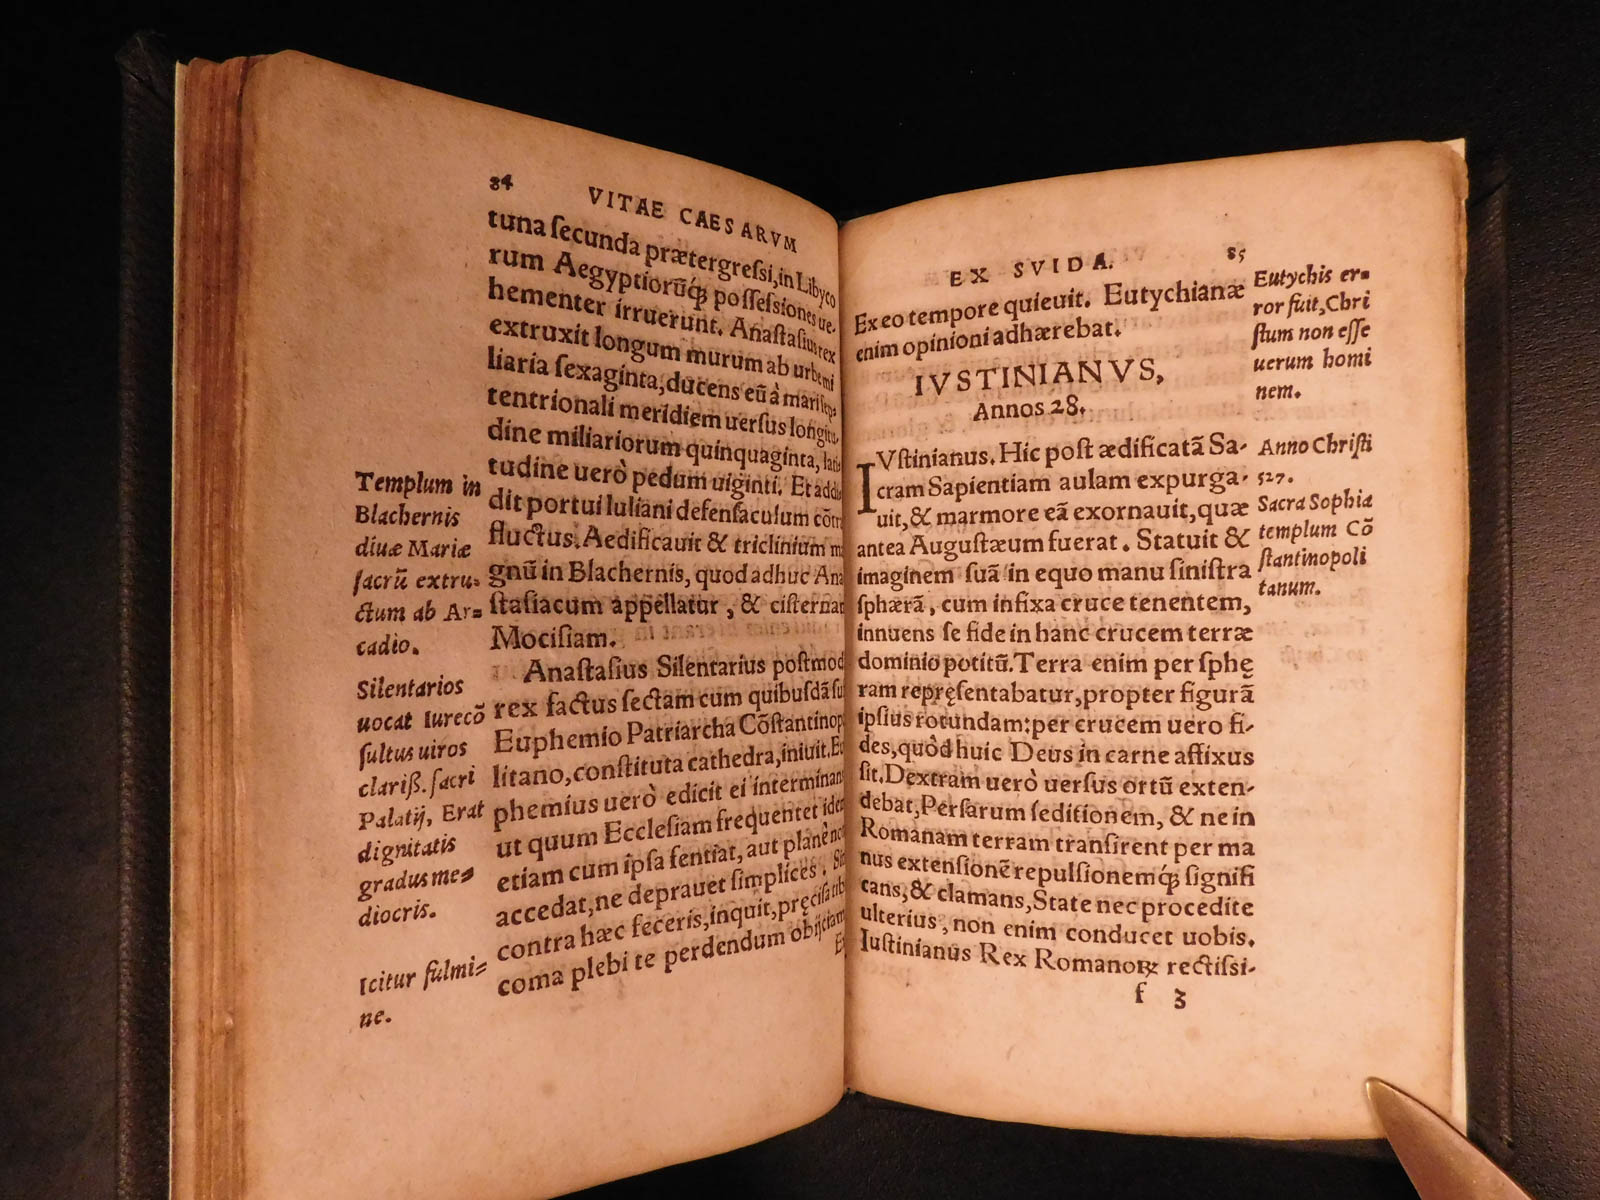 84
VITAE CAESARVM
tuna secunda prætergressi, in Libyco
rum Aegyptiorũq́; possessiones ue-
hementer irruerunt. Anastasius rex
extruxit longum murum ab urbe mi
liaria sexaginta, ducens eũ à mari sep-
tentrionali meridiem uersus longitu-
dine miliariorum quinquaginta, lati
tudine uerò pedum uiginti. Et addi
dit portui Iuliani defensaculum cõtra
fluctus. Aedificauit & triclinium ma
gnũ in Blachernis, quod adhuc Ana
stasiacum appellatur, & cisternam
Mocisiam.
Anastasius Silentarius postmod
rex factus sectam cum quibusdã sui
Euphemio Patriarcha Cõstantinopo
litano, constituta cathedra, iniuit. Eu
phemius uerò edicit ei interminans
ut quum Ecclesiam frequentet idem
etiam cum ipsa sentiat, aut planè non
accedat, ne deprauet simplices. Sin
contra hæc feceris, inquit, pręcisa tibi
coma plebi te perdendum obijciam
Ex
Templum in
Blachernis
diuæ Mariæ
sacrũ extru-
ctum ab Ar-
cadio.
Silentarios
uocat Iurecõ
sultus uiros
clariß. sacri
Palatij, Erat
dignitatis
gradus me-
diocris.
Icitur fulmi-
ne.
EX SVIDA.
85
Ex eo tempore quieuit. Eutychianæ
enim opinioni adhærebat.
IVSTINIANVS,
Annos 28.
IVstinianus. Hic post ædificatã Sa-
cram Sapientiam aulam expurga-
uit, & marmore eã exornauit, quæ
antea Augustæum fuerat. Statuit &
imaginem suã in equo manu sinistra
sphærã, cum infixa cruce tenentem,
innuens se fide in hanc crucem terræ
dominio potitũ. Terra enim per sphę
ram repręsentabatur, propter figurã
ipsius rotundam: per crucem uero fi-
des, quòd huic Deus in carne affixus
sit. Dextram uerò uersus ortũ exten-
debat, Persarum seditionem, & ne in
Romanam terram transirent per ma
nus extensionẽ repulsionemq́; signifi
cans, & clamans, State nec procedite
ulterius, non enim conducet uobis.
Iustinianus Rex Romanoꝝ rectissi-
f 3
Eutychis er-
ror fuit, Chri
stum non esse
uerum homi
nem.
Anno Christi
527.
Sacra Sophia
templum Cõ
stantinopoli
tanum.